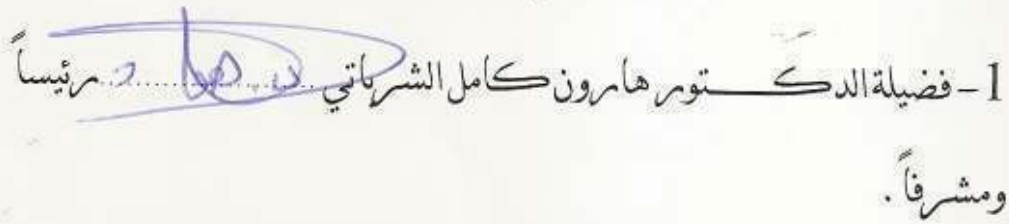 1- فضيلة الدكتور هارون كامل الشرباتي ................ رئيساً
ومشرفاً .